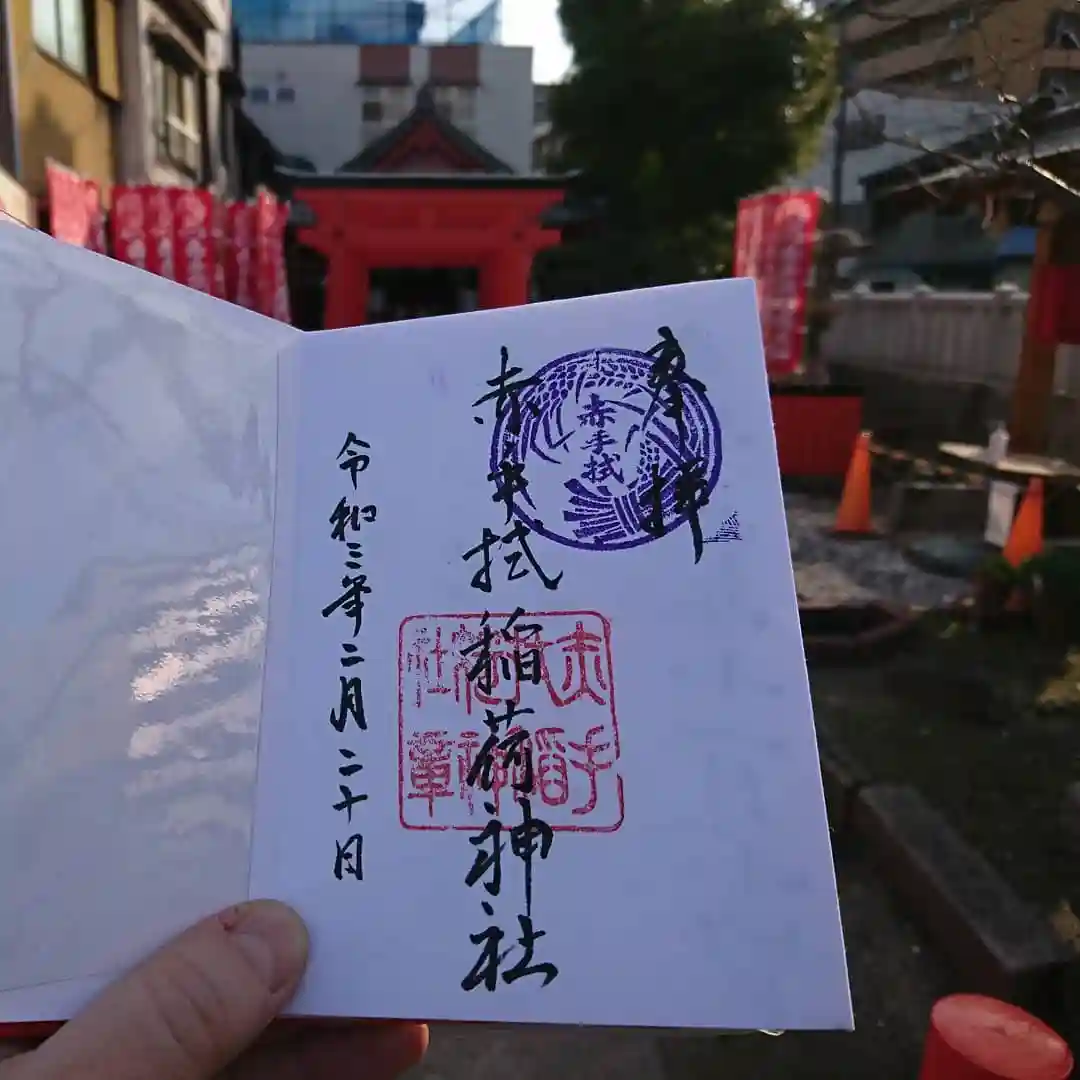 奉拝
赤手拭
赤手拭稲荷神社
赤手
拭稲
荷神
社章
令和三年二月二十日